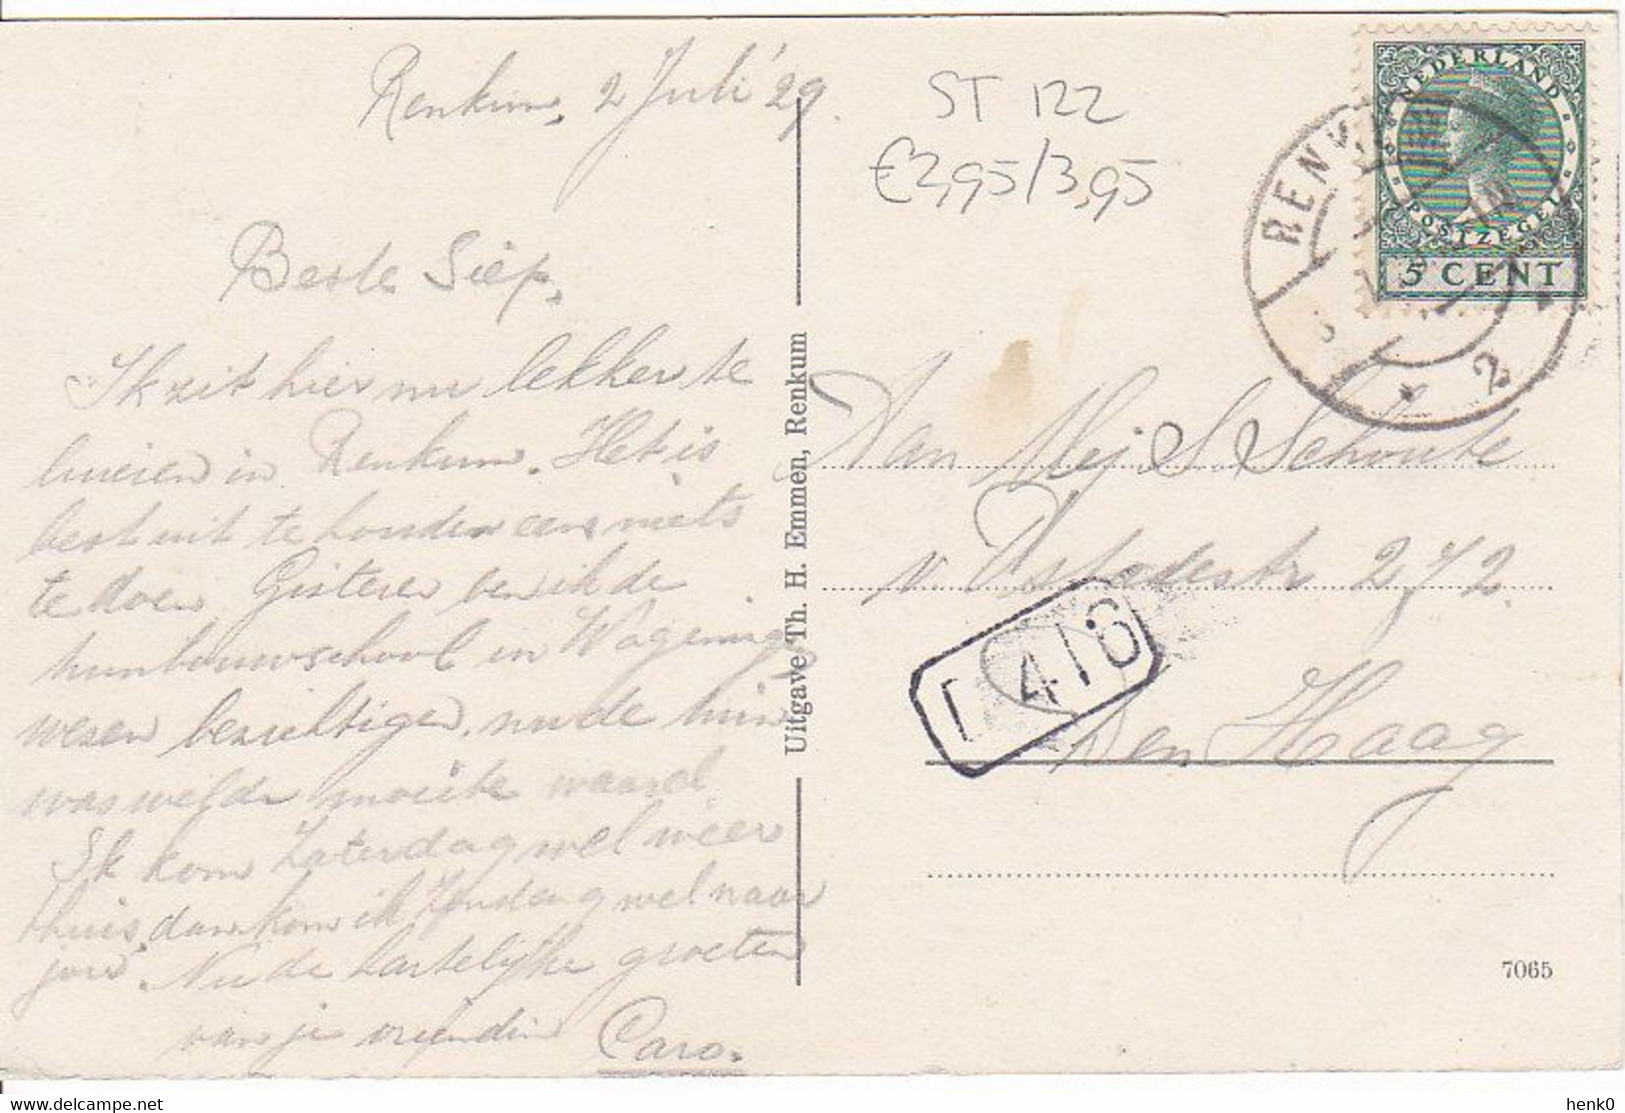 Renkum, 2 Juli '29.
ST 122
€2,95/3,95
Beste Siep,
Ik zit hier nu lekker te
luieren in Renkum. Het is
best uit te houden eens niets
te doen. Gisteren ben ik de
tuinbouwschool in Wagening
wezen bezichtigen, nu de tuin
was welde moeite waard.
Ik kom Zaterdag wel weer
thuis, dan kom ik Zondag wel naar
jou. Nu de hartelijke groeten
van je vriendin Caro.
Uitgave Th. H. Emmen, Renkum
NEDERLAND
POSTZEGEL
5 CENT
RENKUM
2
Aan Mej S. Schoute
v. Ostadestr 272.
Den Haag
416
7065
henk0